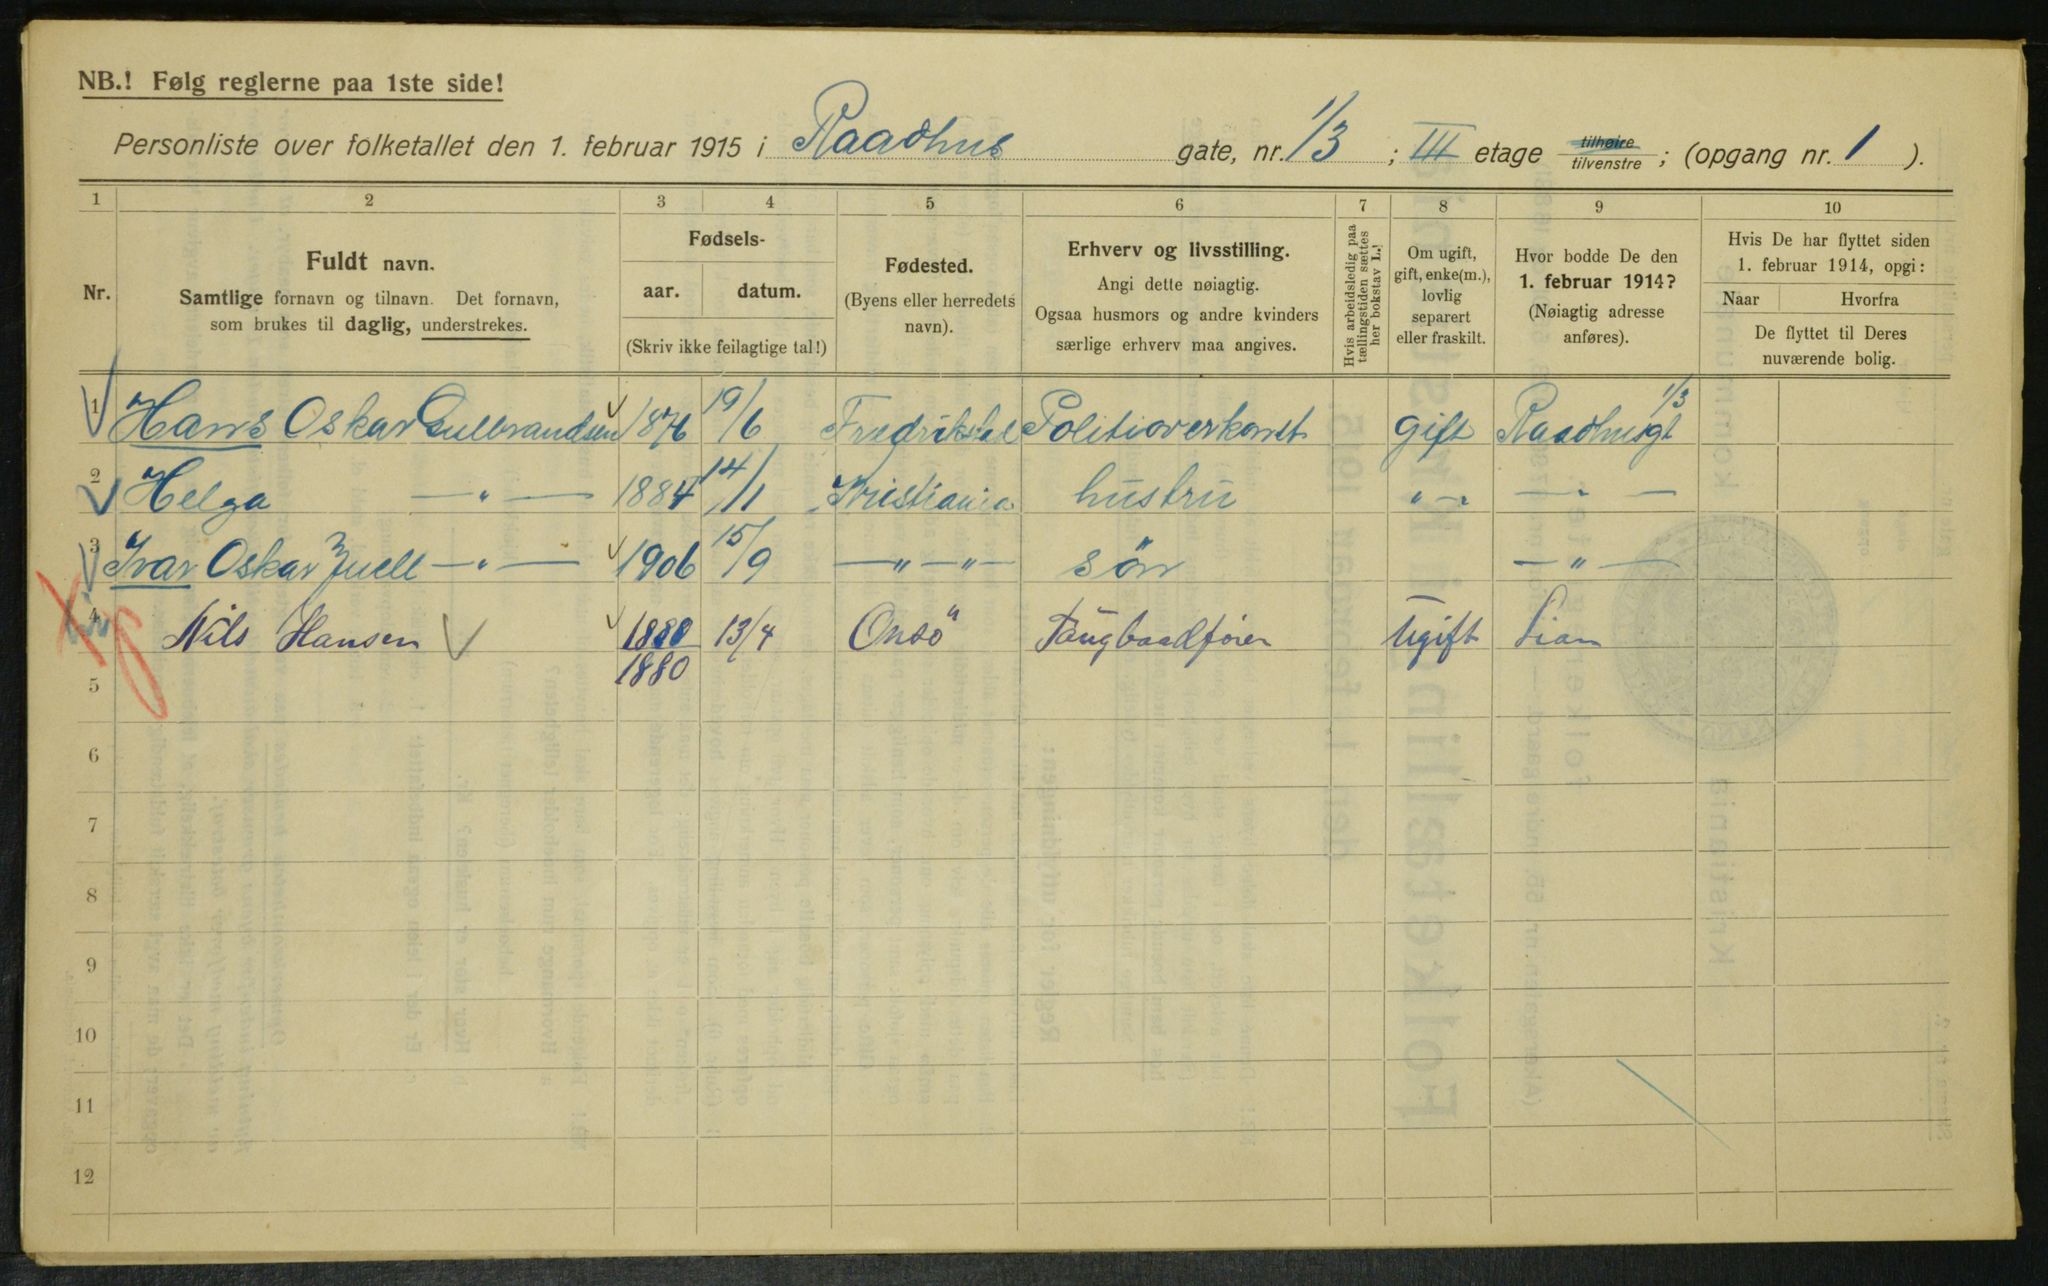 NB.! Følg reglerne paa 1ste side!
Personliste over folketallet den 1. februar 1915 i Raadhus gate, nr. 1/3 ; III etage tilhøire tilvenstre ; (opgang nr. 1 ).
1 2 3 4 5 6 7 8 9 10
Nr.
Fuldt navn.
Samtlige fornavn og tilnavn. Det fornavn,
som brukes til daglig, understrekes.
Fødsels-
aar. datum.
(Skriv ikke feilagtige tal!)
Fødested.
(Byens eller herredets
navn).
Erhverv og livsstilling.
Angi dette nøiagtig.
Ogsaa husmors og andre kvinders
særlige erhverv maa angives.
Hvis arbeidsledig paa
tællingstiden sættes
her bokstav L.!
Om ugift,
gift, enke(m.),
lovlig
separert
eller fraskilt.
Hvor bodde De den
1. februar 1914?
(Nøiagtig adresse
anføres).
Hvis De har flyttet siden
1. februar 1914, opgi:
Naar Hvorfra
De flyttet til Deres
nuværende bolig.
1 Hans Oskar Gulbrandsen 1876 19/6 Fredrikstad Politioverkonst gift Raadhusgt 1/3
2 Helga —"— 1884 14/1 Kristiania hustru "— —"—
3 Ivar Oskar Juell —"— 1906 15/9 —"—"— sön —"—
4 Nils Hansen 1880 13/4 Onsö Taugbaadförer Ugift Lian
1880
5
6
7
8
9
10
11
12